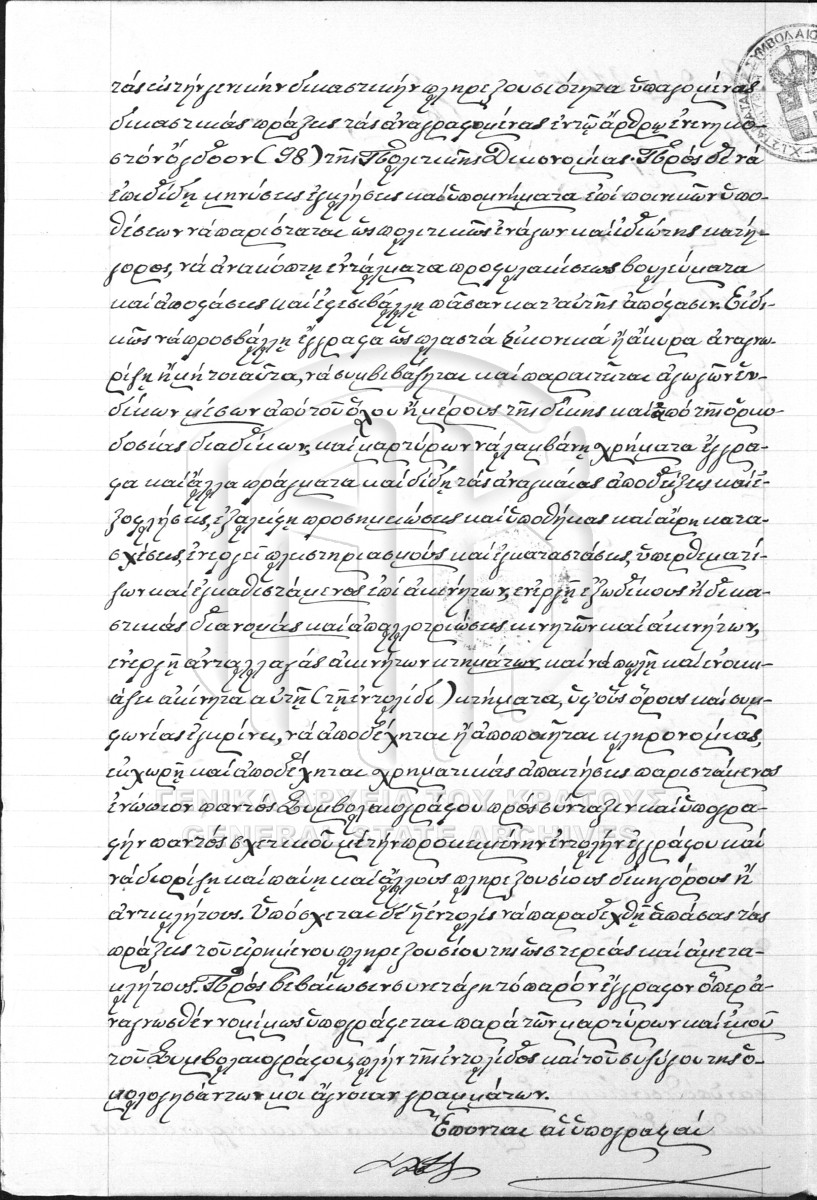 τάς εἰς τήν γενικήν δικαστικήν πληρεξουσιότητα ὑπαγομένας
δικαστικάς πράξεις τάς ἀναγραφομένας ἐν τῷ ἄρθρῳ ἐνενηκο-
στόν ὄγδοον (98) τῆς Πολιτικῆς Δικονομίας. Πρός δέ νά
ἐπιδίδῃ μηνύσεις ἐγκλήσεις καί ὑπομνήματα ἐπί ποινικῶν ὑπο-
θέσεων νά παρίσταται ὡς πολιτικῶς ἐνάγων καί ἰδιώτης κατή-
γορος, νά ἀνακόπτῃ ἐντάλματα προφυλακίσεως βουλεύματα
καί ἀποφάσεις καί ἐφεσιβάλλῃ πᾶσαν κατ' αὐτῆς ἀπόφασιν. Εἰδι-
κῶς νά προσβάλλῃ ἔγγραφα ὡς πλαστά εἰκονικά ἤ ἄκυρα ἀναγνω-
ρίζῃ ἤ μή τοιαῦτα, νά συμβιβάζηται καί παραιτῆται ἀγωγῶν ἐν-
δίκων μέσων ἀπό τοῦ ὅλου ἤ μέρους τῆς δίκης καί ἀπό τῆς ὁρκο-
δοσίας διαδίκων, καί μαρτύρων νά λαμβάνῃ χρήματα ἔγγρα-
φα καί ἄλλα πράγματα καί δίδῃ τάς ἀναγκαίας ἀποδείξεις καί ἐ-
ξοφλήσεις, ἐξαλείφῃ προσημειώσεις καί ὑποθήκας καί αἴρῃ κατα-
σχέσεις, ἐνεργεῖ πλειστηριασμούς καί ἐγκαταστάσεις, ὑπερθεματί-
ζων καί ἐγκαθιστάμενος ἐπί ἀκινήτων, ἐνεργῇ ἐξωδίκους ἤ δικα-
στικάς διανομάς καί ἀπαλλοτριώσεις κινητῶν καί ἀκινήτων,
ἐνεργῇ ἀνταλλαγάς ἀκινήτων κτημάτων καί νά πωλῇ καί ἐνοικι-
άζει ἀκίνητα αὐτῇ (τῇ ἐντολίδι) κτήματα, ὑφ' οὕς ὅρους καί συμ-
φωνίας ἐγκρίνει, νά ἀποδέχηται ἤ ἀποποιῆται κληρονομίας,
ἐκχωρῇ καί ἀποδέχηται χρηματικάς ἀπαιτήσεις παριστάμενος
ἐνώπιον παντός Συμβολαιογράφου πρός σύνταξιν καί ὑπογρα-
φήν παντός σχετικοῦ μέ τήν προκειμένην ἐντολήν ἐγγράφου καί
νά διορίζῃ καί παύῃ καί ἄλλους πληρεξουσίους δικηγόρους ἤ
ἀντικλήτους. Ὑπόσχεται δέ ἡ ἐντολίς νά παραδεχθῇ ἁπάσας τάς
πράξεις τοῦ εἰρημένου πληρεξουσίου της ὡς στερεάς καί ἀμετα-
κλήτους. Πρός βεβαίωσιν συνετάγη τό παρόν ἔγγραφον ὅπερ ἀ-
ναγνωσθέν νομίμως ὑπογράφεται παρά τῶν μαρτύρων καί ἐμοῦ
τοῦ Συμβολαιογράφου, πλήν τῆς ἐντολίδος καί τοῦ συζύγου της ὁ-
μολογησάντων μοι ἄγνοιαν γραμμάτων.
Ἕπονται αἱ ὑπογραφαί
ΓΕΝΙΚΑ ΑΡΧΕΙΑ ΤΟΥ ΚΡΑΤΟΥΣ
GENERAL STATE ARCHIVES